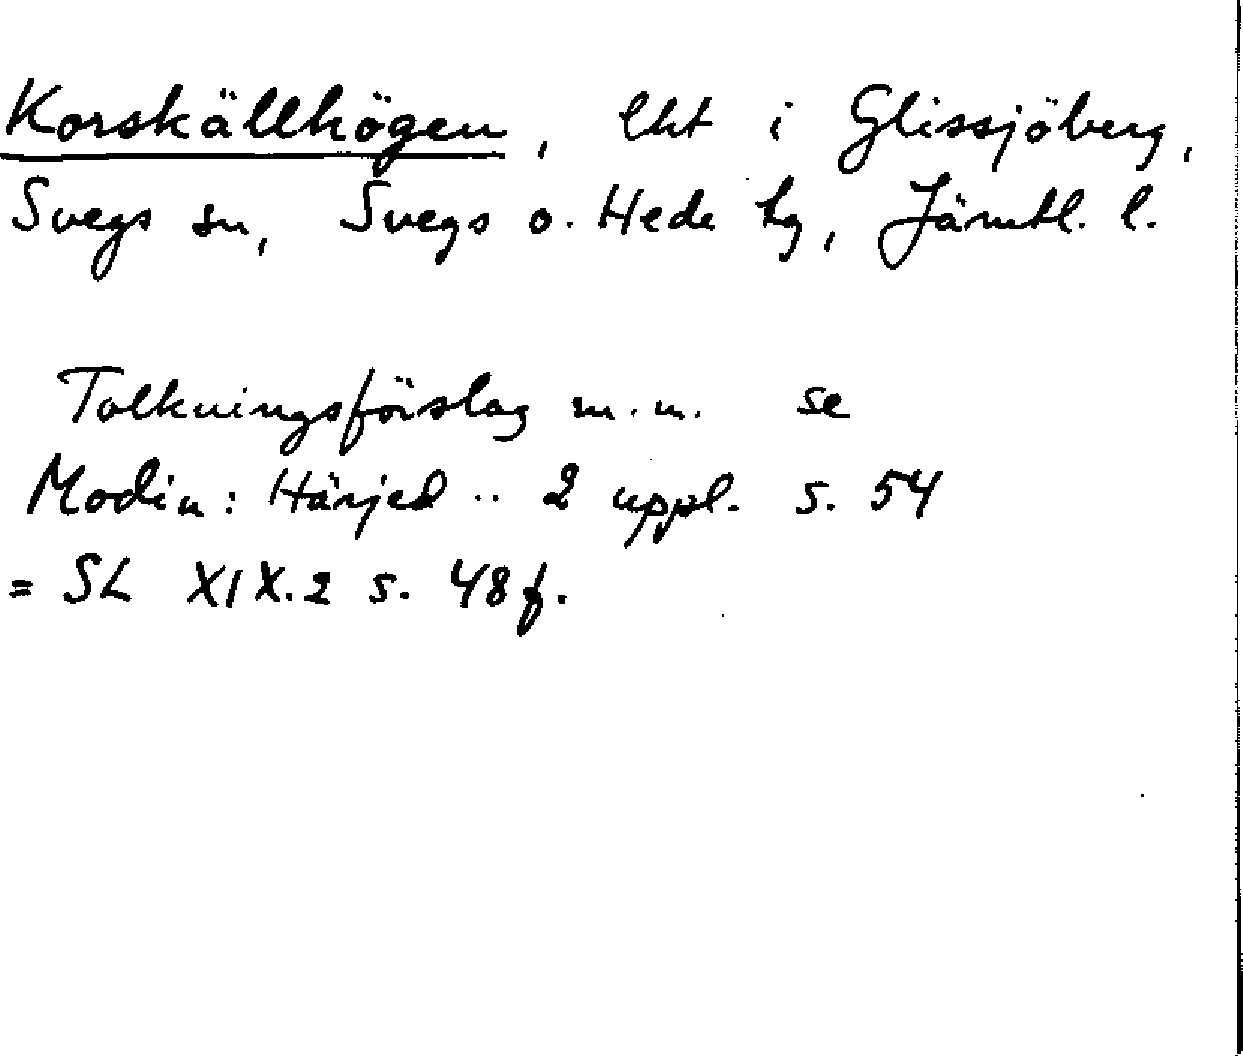 Korskällhögen, lht i Glissjöberg,
Svegs sn, Svegs o. Hede tg, Jämtl. l.
Tolkningsförslag m.m. se
Modin: Härjed .. 2 uppl. s. 54
= SL XIX.2 s. 48 f.